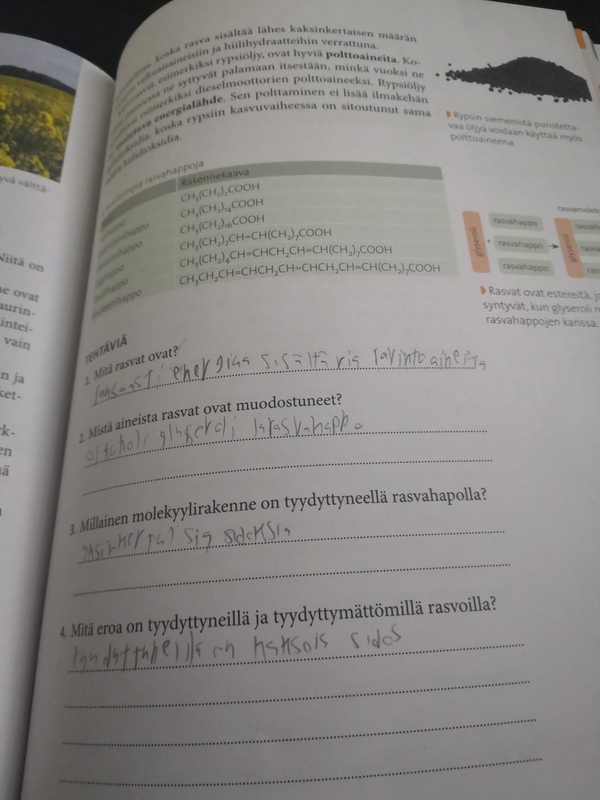 koska rasva sisältää lähes kaksinkertaisen määrän
valkuaisaineisiin ja hiilihydraatteihin verrattuna.
esimerkiksi rypsiöljy, ovat hyviä polttoaineita. Ko-
ne syttyvät palamaan itsestään, minkä vuoksi ne
esimerkiksi dieselmoottorien polttoaineeksi. Rypsiöljy
energialähde. Sen polttaminen ei lisää ilmakehän
koska rypsin kasvuvaiheessa on sitoutunut sama
hiilidioksidia.
Rypsin siemenistä puristetta-
vaa öljyä voidaan käyttää myös
polttoaineena.
rasvahappoja
Rakennekaava
CH₃(CH₂)₂COOH
CH₃(CH₂)₁₄COOH
CH₃(CH₂)₁₆COOH
CH₃(CH₂)₇CH=CH(CH₂)₇COOH
CH₃(CH₂)₄CH=CHCH₂CH=CH(CH₂)₇COOH
CH₃CH₂CH=CHCH₂CH=CHCH₂CH=CH(CH₂)₇COOH
glyseroli
+
rasvahappo
rasvahappo
rasvahappo
glyseroli
Rasvat ovat estereitä, jo
syntyvät, kun glyseroli r
rasvahappojen kanssa.
yvä vältt-
Niitä on
ne ovat
aurin-
intei-
vain
n ja
ket-
rk-
en
ä
TEHTÄVIÄ
1. Mitä rasvat ovat?
energiaa sisältäviä ravintoaineita
2. Mistä aineista rasvat ovat muodostuneet?
alkoholi glyseroli ja rasvahappo
3. Millainen molekyylirakenne on tyydyttyneellä rasvahapolla?
yksinkertaisia sidoksia
4. Mitä eroa on tyydyttyneillä ja tyydyttymättömillä rasvoilla?
on kaksois sidos